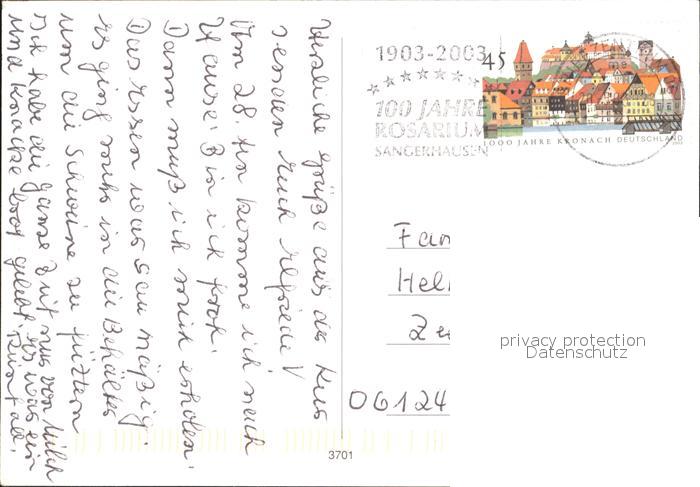 Herzliche Grüße aus der Kur
senden euch
Am 28. ten komme ich nach
Hause. Bin ich froh.
Dann muß ich mich erholen.
Das Essen war saumäßig.
es ging mehr in die Behälter
um die Schweine zu füttern
Ich habe die ganze Zeit nur von Milch
und Knäcke brot gelebt. Es war ein
1903-2003
100 JAHRE
ROSARIUM
SANGERHAUSEN
45
1000 JAHRE KRONACH DEUTSCHLAND
Fam
Hel
Ze
06124
privacy protection
Datenschutz
3701